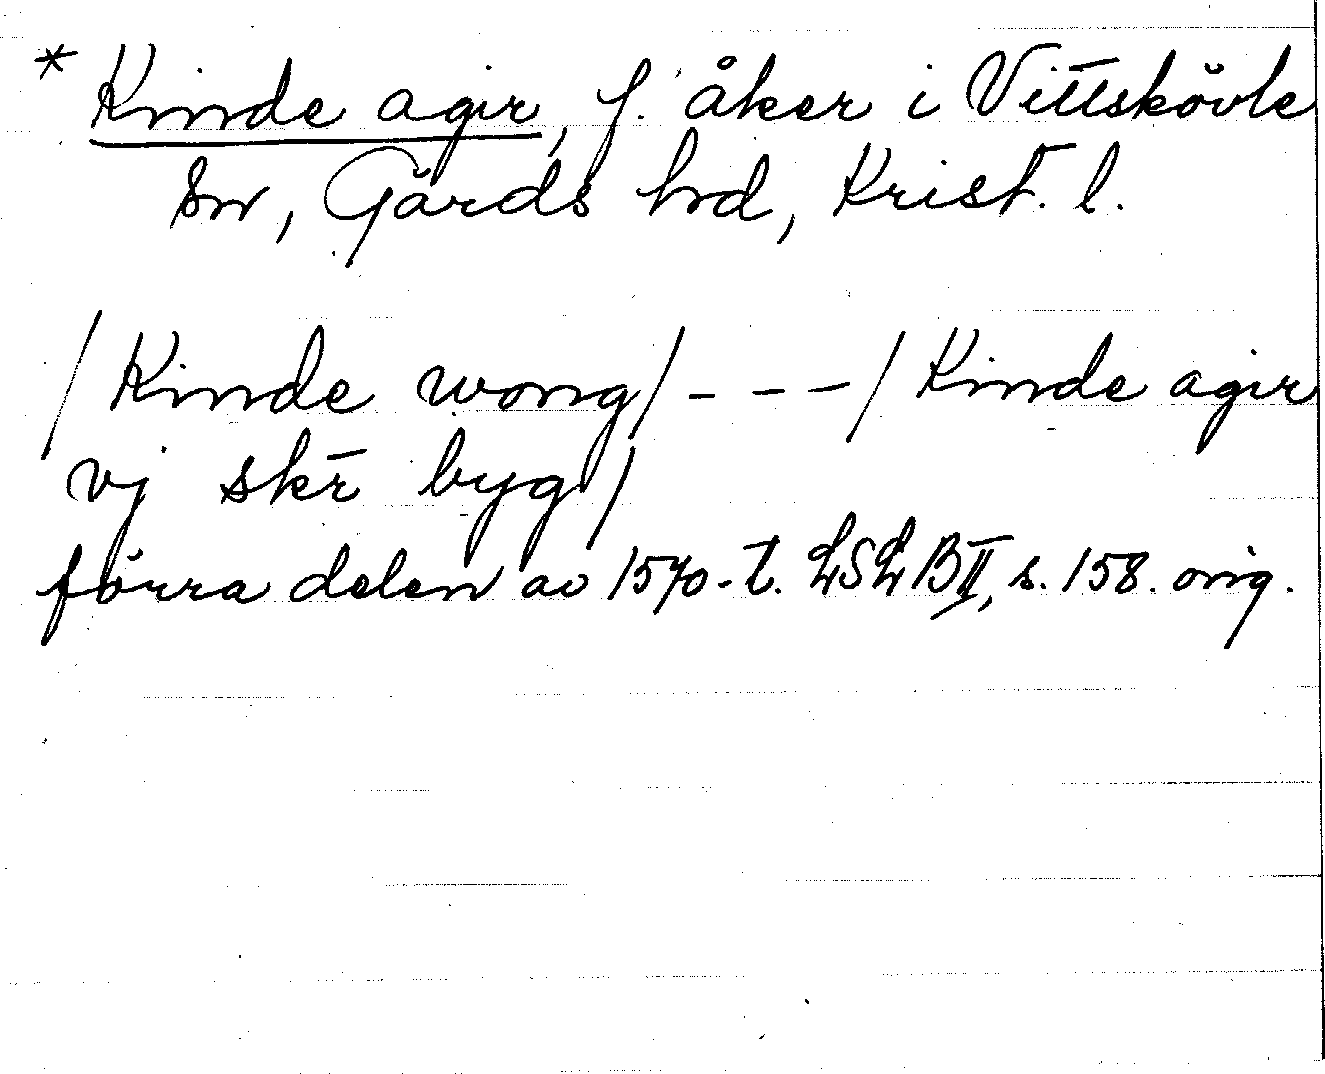 * Kinde agir, f. åker i Vittskövle
sn, Gärds hd, Krist. l.
/Kinde wong/ - - - / Kinde agir
vj skr̄ byg/
förra delen av 1570-t. LSL B II, s. 158. orig.